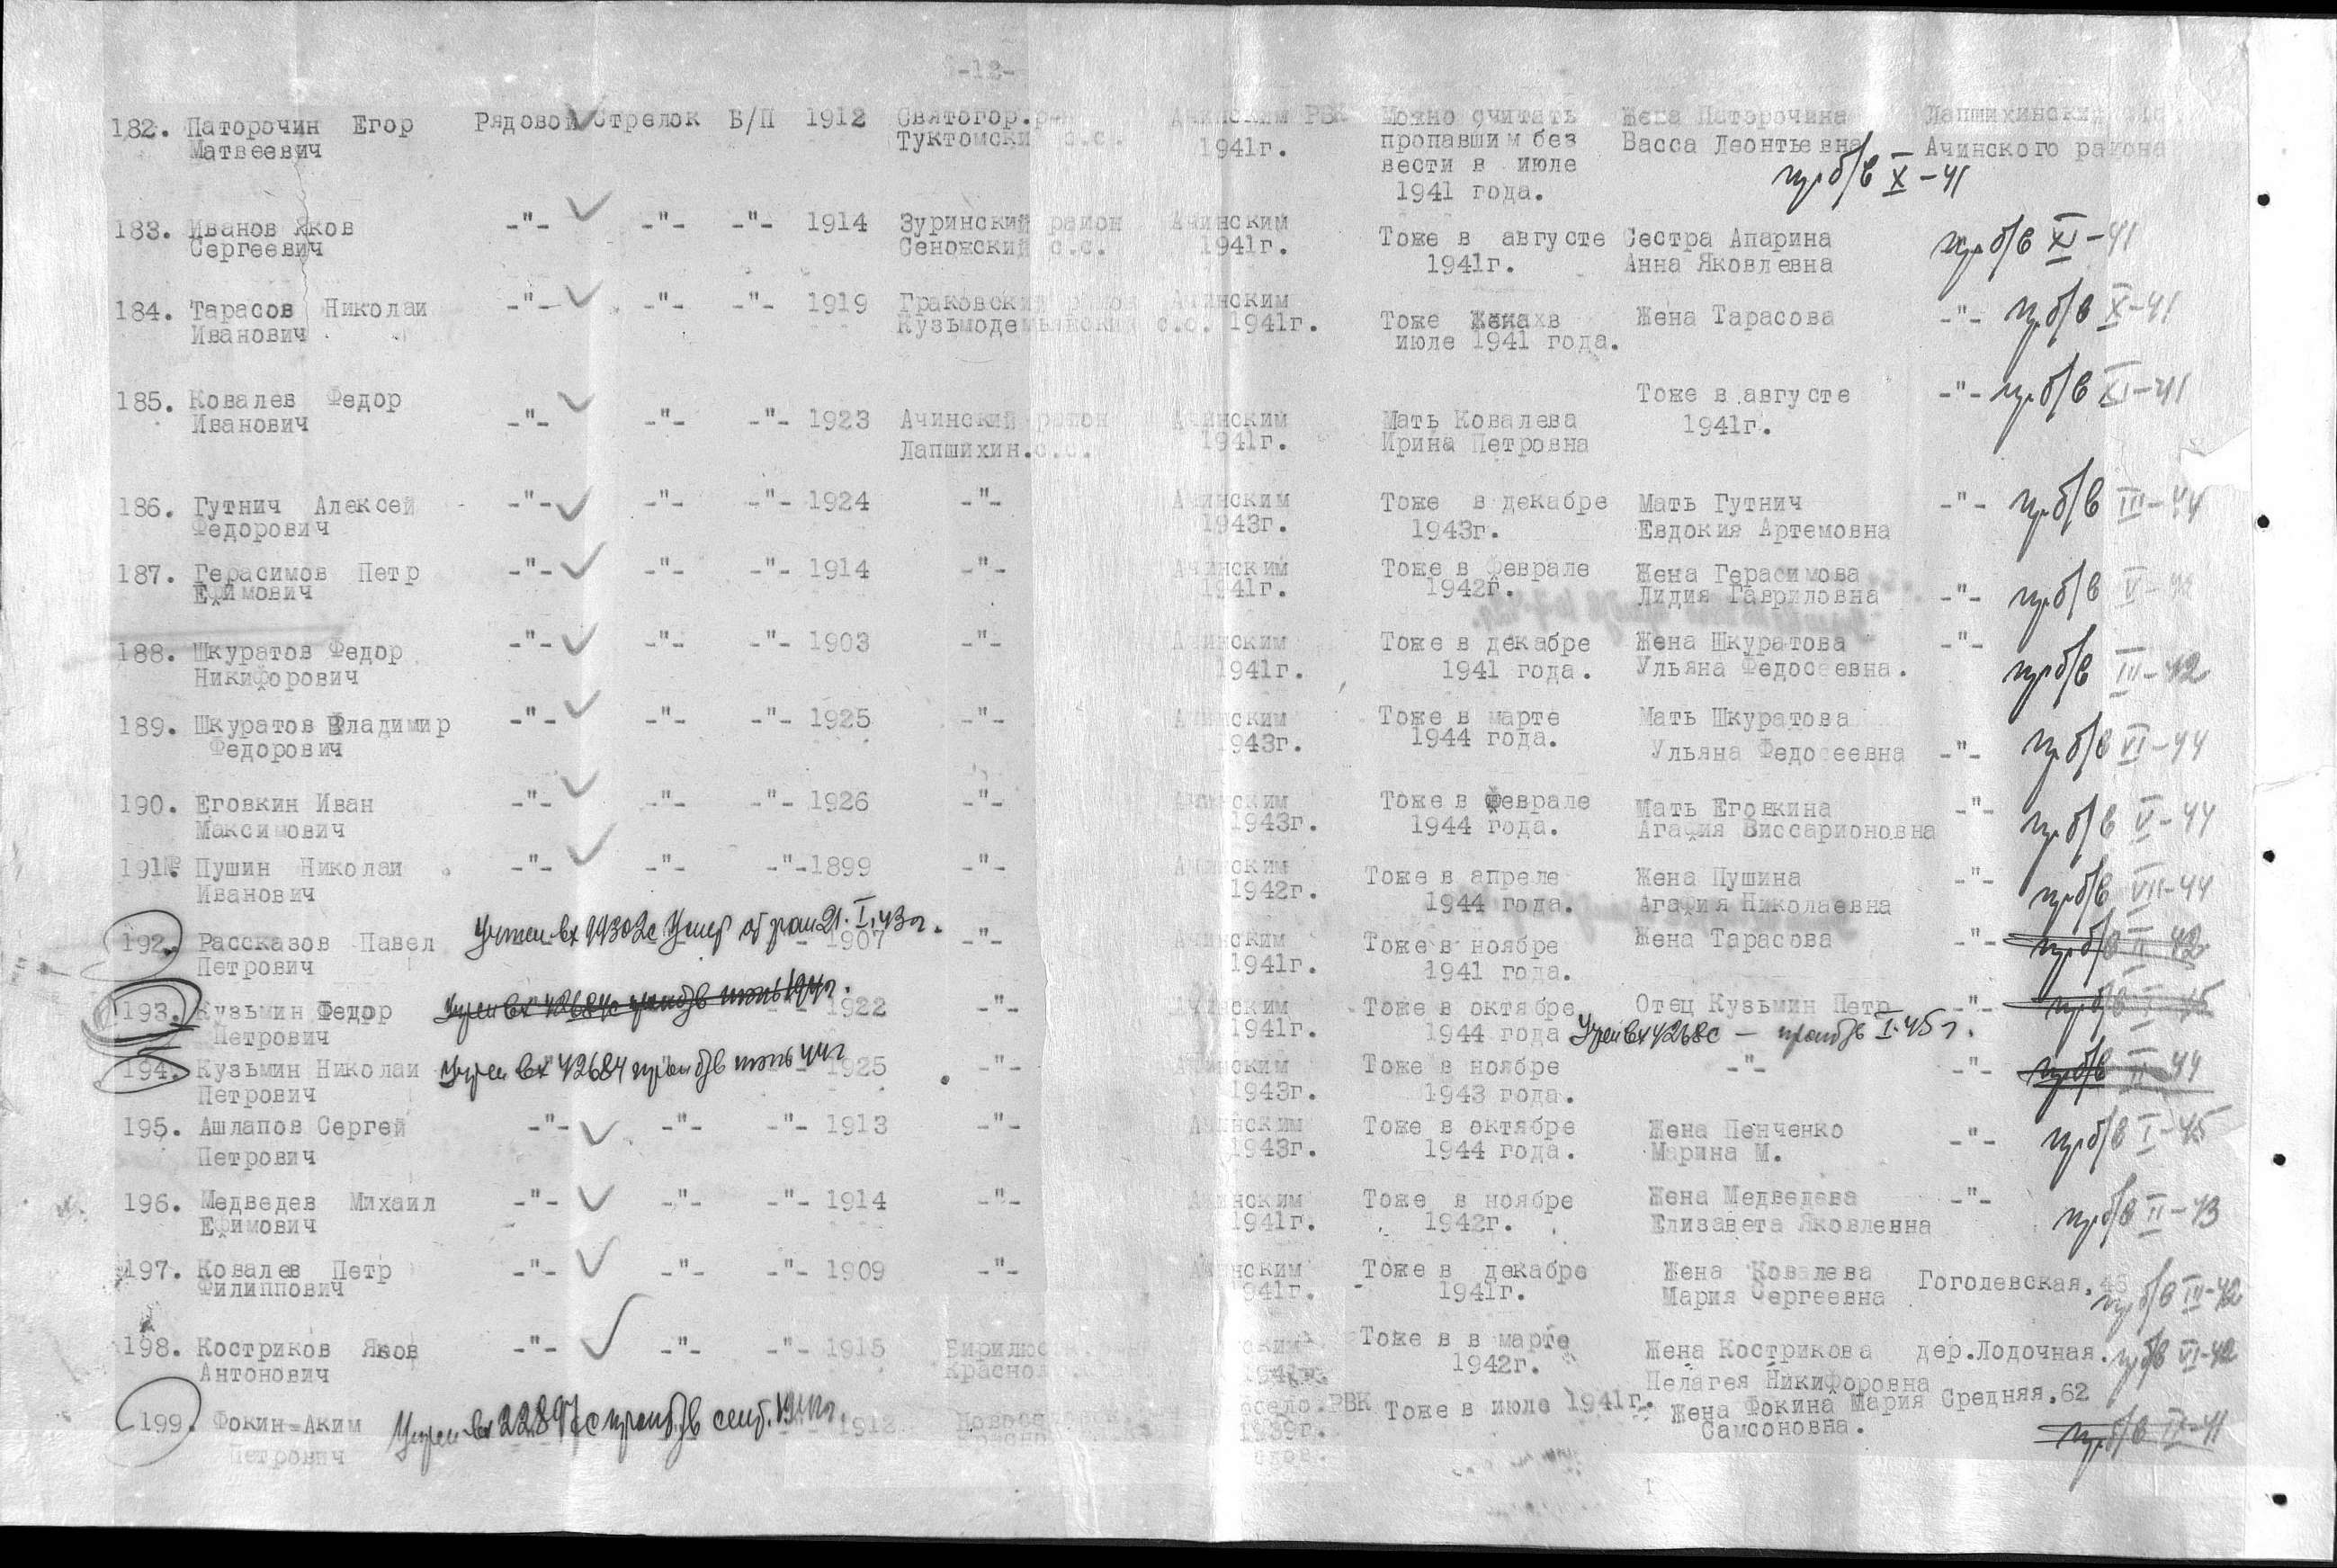 -12-
182. Паторочин Егор Рядовой Стрелок Б/П 1912 Святогор.р- Ачинским РВК Можно считать Жена Паторочина Лапшихинский с/с
Матвеевич Туктомский с.с. 1941г. пропавшим без Васса Леонтьевна Ачинского района
вести в июле пр. б/в X-41
1941 года.
183. Иванов Яков -"- -"- -"- 1914 Зуринский район Ачинским Тоже в августе Сестра Апарина пр. б/в XI-41
Сергеевич Сеножский с.с. 1941г. 1941г. Анна Яковлевна
184. Тарасов Николай -"- -"- -"- 1919 Граковский район Ачинским Тоже в Жена Тарасова -"- пр. б/в X-41
Иванович Кузьмодемьянский с.с. 1941г. июле 1941 года.
185. Ковалев Федор -"- -"- -"- 1923 Ачинский район Ачинским Мать Ковалева Тоже в августе -"- пр. б/в XI-41
Иванович Лапшихин.с.с. 1941г. Ирина Петровна 1941г.
186. Гутнич Алексей -"- -"- -"- 1924 -"- Ачинским Тоже в декабре Мать Гутнич -"- пр. б/в III-44
Федорович 1943г. 1943г. Евдокия Артемовна
187. Герасимов Петр -"- -"- -"- 1914 -"- Ачинским Тоже в феврале Жена Герасимова
Ефимович 1941г. 1942г. Лидия Гавриловна -"- пр. б/в V-42
188. Шкуратов Федор -"- -"- -"- 1903 -"- Ачинским Тоже в декабре Жена Шкуратова -"-
Никифорович 1941г. 1941 года. Ульяна Федосеевна. пр. б/в III-42
189. Шкуратов Владимир -"- -"- -"- 1925 -"- Ачинским Тоже в марте Мать Шкуратова
Федорович 1943г. 1944 года. Ульяна Федосеевна -"- пр. б/в VI-44
190. Еговкин Иван -"- -"- -"- 1926 -"- Ачинским Тоже в феврале Мать Еговкина -"-
Максимович 1943г. 1944 года. Агафия Виссарионовна пр. б/в V-44
191. Пушин Николай -"- -"- -"- 1899 -"- Ачинским Тоже в апреле Жена Пушина -"-
Иванович 1942г. 1944 года. Агафия Николаевна пр. б/в VII-44
Учтен вх 99302с Умер от ран 21.I.43г.
192. Рассказов Павел 1907 -"- Ачинским Тоже в ноябре Жена Тарасова -"- пр. б/в II-42
Петрович 1941г. 1941 года.
193. Кузьмин Федор 1922 -"- Ачинским Тоже в октябре Отец Кузьмин Петр -"- пр. б/в I-45
Петрович 1941г. 1944 года Учтен вх 4268с — проп б/в I.45г.
194. Кузьмин Николай Учтен вх 42684 проп б/в июнь 44г 1925 -"- Ачинским Тоже в ноябре -"- -"- пр. б/в II-44
Петрович 1943г. 1943 года.
195. Ашлапов Сергей -"- -"- -"- 1913 -"- Ачинским Тоже в октябре Жена Пенченко -"- пр. б/в I-45
Петрович 1943г. 1944 года. Марина М.
196. Медведев Михаил -"- -"- -"- 1914 -"- Ачинским Тоже в ноябре Жена Медведева -"-
Ефимович 1941г. 1942г. Елизавета Яковлевна пр. б/в II-43
197. Ковалев Петр -"- -"- -"- 1909 -"- Ачинским Тоже в декабре Жена Ковалева Гоголевская,46
Филиппович 1941г. 1941г. Мария Сергеевна пр. б/в III-42
198. Костриков Яков -"- -"- -"- 1915 Тоже в в марте Жена Кострикова дер.Лодочная. пр. б/в VI-42
Антонович 1942г. Пелагея Никифоровна
199. Фокин-Аким Учтен вх 22897с проп б/в сент. 1941г. 1912 РВК Тоже в июле 1941г. Жена Фокина Мария Средняя,62
Петрович 1939г. Самсоновна. пр. б/в II-41